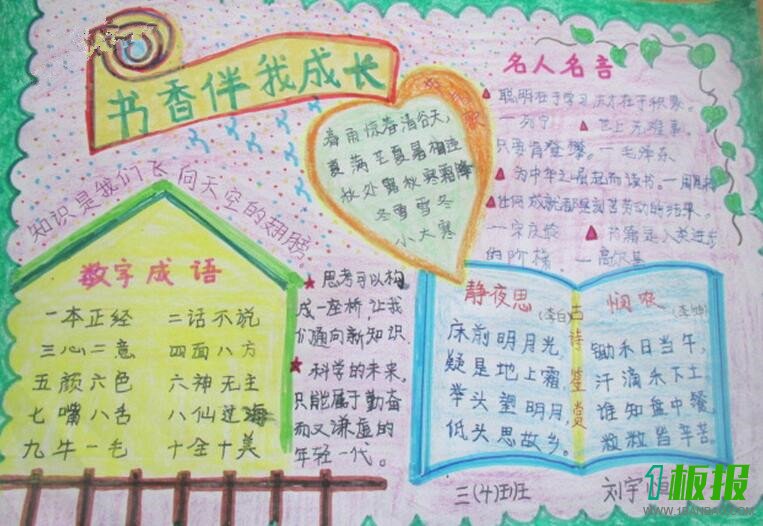 书香伴我成长
知识是我们飞向天空的翅膀
春雨惊春清谷天,
夏满芒夏暑相连
秋处露秋寒霜降
冬雪雪冬
小大寒
名人名言
聪明在于学习,天才在于积累。
—列宁 世上无难事,
只要肯登攀。—毛泽东
为中华之崛起而读书。—周恩来
任何成就都是刻苦劳动的结果。
—宋庆龄 书籍是人类进步
的阶梯。—高尔基
数字成语
一本正经 二话不说
三心二意 四面八方
五颜六色 六神无主
七嘴八舌 八仙过海
九牛一毛 十全十美
思考可以构
成一座桥,让我
们通向新知识.
科学的未来,
只能属于勤奋
而又谦虚的
年轻一代。
静夜思
(李白)
床前明月光,
疑是地上霜。
举头望明月,
低头思故乡。
古诗鉴赏
悯农
(李绅)
锄禾日当午,
汗滴禾下土,
谁知盘中餐,
粒粒皆辛苦。
三(4)班 刘宇恒
1板报
WWW.1BANBAO.COM